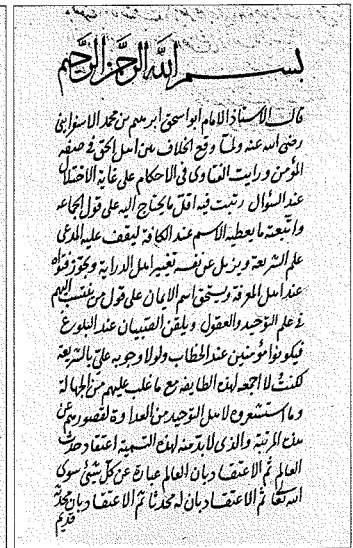 بسم الله الرحمن الرحيم
قال الاستاذ الامام ابو اسحق ابرهيم بن محمد الاسفرايني
رضي الله عنه ولما وقع الخلاف بين اهل الحق في صفة
المؤمن ورايت الفتاوى في الاحكام على غاية الاختلاف
عند السؤال رتبت فيه اقل ما يحتاج اليه على قول الجماعة
واتبعته ما يعطيه الاسم عند الكافة ليقف عليه المدعي
علم الشريعة ويزيل عن نفسه تغيير اهل الدراية وتجوز فتواه
عند اهل المعرفة ويستحق اسم الايمان على قول من ينتسب اليهم
في علم التوحيد والعقول ويلقن الصبيان عند البلوغ
فيكونوا مؤمنين عند الخطاب ولولا وجوبه على بالشريعة
لكنت لا اجمعه لهذه الطايفة مع ما غلب عليهم من الجهالة
وما استشعروه لاهل التوحيد من العداوة لقصورهم عن
هذه المرتبة والذي لا بد منه لهذه التسمية اعتقاد حدث
العالم ثم الاعتقاد بان العالم عبارة عن كل شئ سوى
الله تعالى ثم الاعتقاد بان له محدثا ثم الاعتقاد بان محدثه
قديم